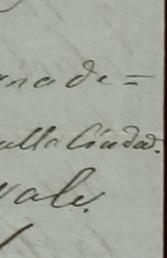 nade=
alla Ciudad.
vale.